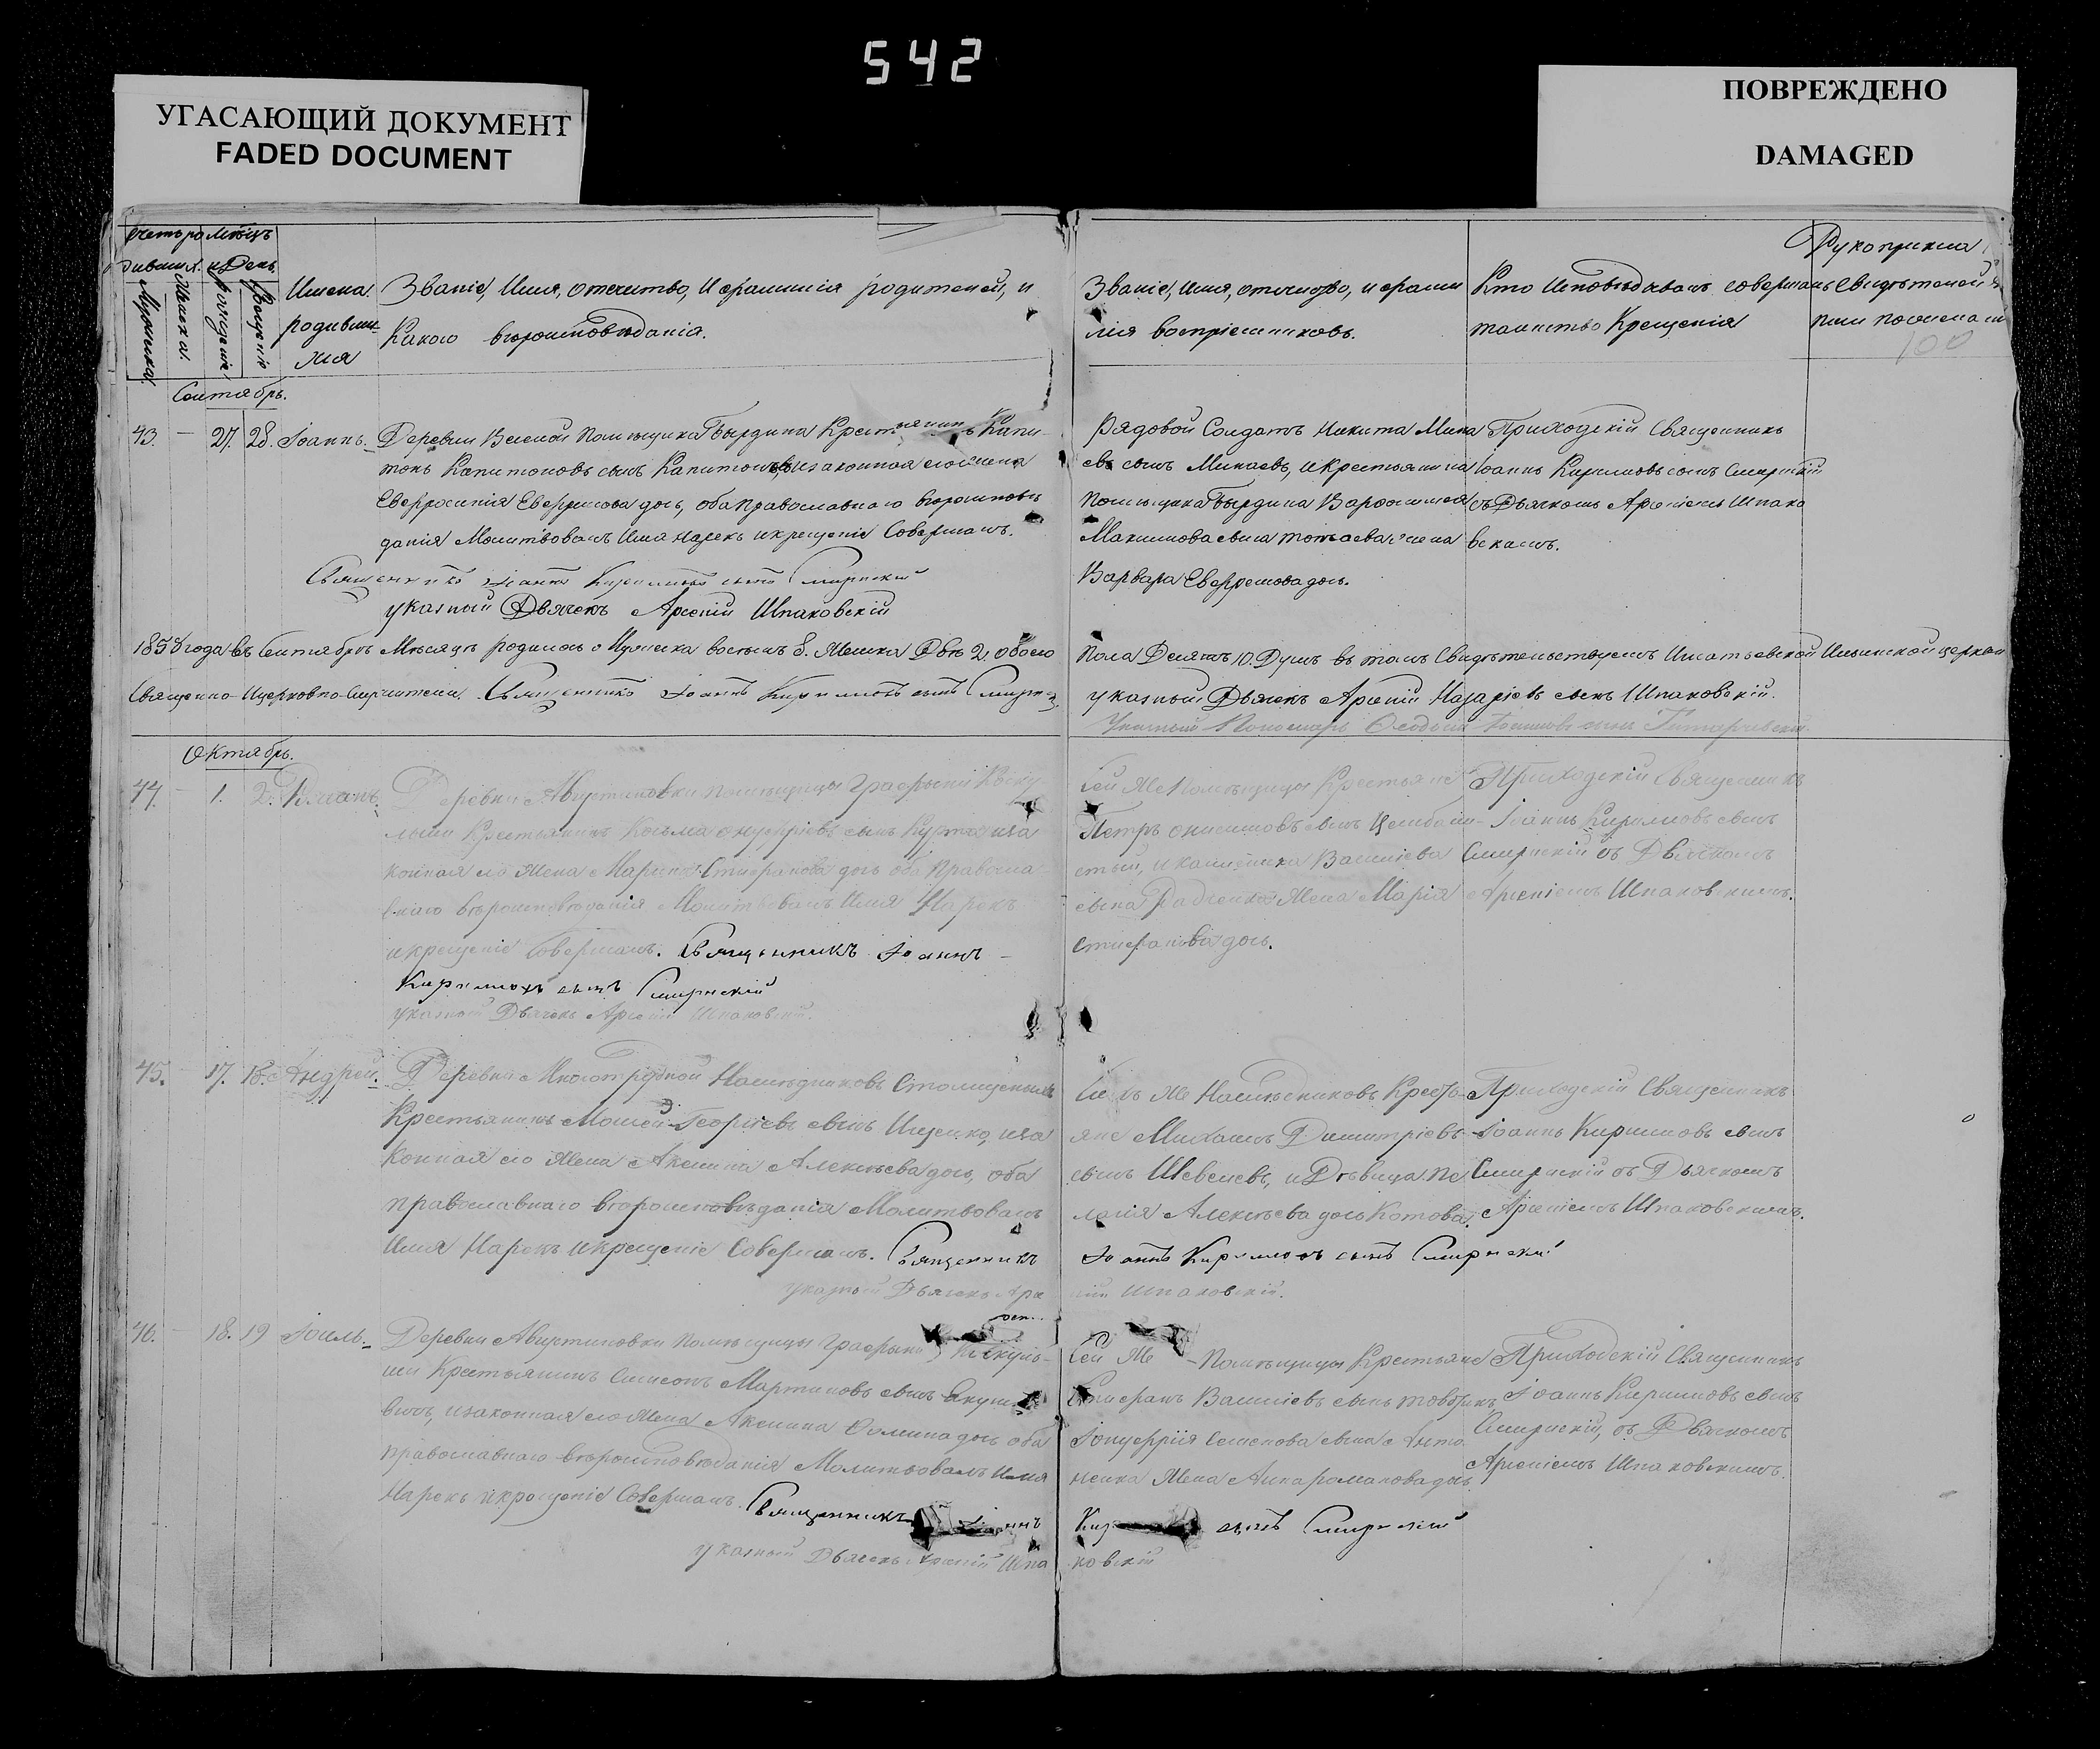 542
УГАСАЮЩИЙ ДОКУМЕНТ
FADED DOCUMENT
ПОВРЕЖДЕНО
DAMAGED
Счетъ ро
дившихся.
Мѣсяцъ
и День.
Мужеска.
Женска.
рожденіе.
Крещеніе
Имена
родивши
хся
Званіе, Имя, отечество, И фамилія родителей, и
Какого вѣроисповѣданія.
Званіе, имя, отечество, и фами
лія воспріемниковъ.
Кто Исповѣдывалъ совершалъ
таинство Крещенія
Рукоприкла
Свидѣтелей
100
Сентябрь.
43. — 27. 28. Іоаннъ.
Деревни Помѣщика Бырдина Крестьянинъ Капи-
тонъ Капитоновъ сынъ Капитоновъ, изаконная его жена
Евфросинія Евфимова дочь, оба православнаго вѣроисповѣ
данія Молитвовалъ Имя нарекъ икрещеніе Совершалъ.
Священникъ Іоаннъ Кирилловъ сынъ Смирнскій
указный Дьячекъ Арсеній Шпаковскій
Рядовой Солдатъ Никита Мина
евъ сынъ Минаевъ, икрестьянина
помѣщика Бырдина Варфоломея
Максимова сына жена
Варвара Евфремова дочь.
Приходскій Священникъ
Іоаннъ Кирилловъ сынъ Смирнскій
съ Дьячкомъ Арсеніемъ Шпако
вскимъ.
1858 года въ Сентябрѣ Мѣсяцѣ родилось Мужеска восемь 8. Женска Двѣ 2. обоего
пола Десять 10. Душъ въ томъ Свидѣтельствуемъ Игнатьевской Ильинской церкви
Священно-Ицерковно-служители. Священникъ Іоаннъ Кирилловъ сынъ
указный Дьячекъ Арсеній Назаріевъ сынъ Шпаковскій.
Указный Пономарь сынъ
Октябрь.
44. — 1. 2.
Деревни Августиновки помѣщицы Графыни
Крестьянинъ Козьма онуфріевъ сынъ иза
конная его Жена Марина Стефанова дочь оба Правосла
внаго вѣроисповѣданія Молитвовалъ Имя Нарекъ
икрещеніе Совершалъ. Священникъ Іоаннъ —
Кирилловъ сынъ Смирнскій
указный Дьячекъ Арсеній Шпаковскій.
Сей Же Помѣщицы Крестьяне
Петръ онисимовъ сынъ
стый, Василіева
сына Радченка Жена Марія
Стефанова дочь.
Приходскій Священникъ
Іоаннъ Кирилловъ сынъ
Смирнскій съ Дьячкомъ
Арсеніемъ Шпаковскимъ.
45. — 17. 18. Андрей.
Деревни Многотрудной Наслѣдниковъ
Крестьянинъ Моисей Георгіевъ сынъ Ищенко, иза
конная его Жена Аксинія Алексѣева дочь, оба
православнаго вѣроисповѣданія Молитвовалъ
Имя Нарекъ икрещеніе Совершалъ. Священникъ
Іоаннъ Кирилловъ сынъ Смирнскій
указный Дьячекъ Арсе
ній Шпаковскій.
Сихъ Же Наслѣдниковъ Кресть-
яне Михаилъ Димитріевъ
сынъ Шевелевъ, и Дѣвица Пе
лагія Алексѣева дочь Котова.
Приходскій Священникъ
Іоаннъ Кирилловъ сынъ
Смирнскій съ Дьячкомъ
Арсеніемъ Шпаковскимъ.
46. — 18. 19 Іоиль.
Деревни Августиновки помѣщицы Графыни
Крестьянинъ Симеонъ Мартиновъ сынъ
изаконная его Жена Аксинія Фомина дочь оба
православнаго вѣроисповѣданія Молитвовалъ Имя
Нарекъ икрещеніе Совершалъ. Священникъ
сынъ Смирнскій
указный Дьячекъ Арсеній Шпа
ковскій
Сей Же Помѣщицы Крестьяне
Стефанъ Василіевъ сынъ
Іонуфрія Семенова сына Анто
ненка Жена Анна романова дочь
Приходскій Священникъ
Іоаннъ Кирилловъ сынъ
Смирнскій, съ Дьячкомъ
Арсеніемъ Шпаковскимъ.